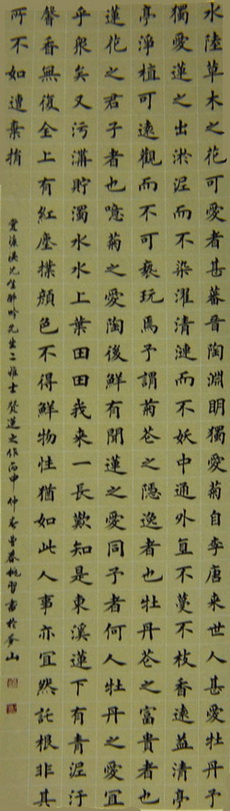 水陸草木之花可愛者甚蕃晉陶淵明獨愛菊自李唐來世人甚愛牡丹予
獨愛蓮之出淤泥而不染濯清漣而不妖中通外直不蔓不枝香遠益清亭
亭淨植可遠觀而不可褻玩焉予謂菊花之隱逸者也牡丹花之富貴者也
蓮花之君子者也噫菊之愛陶後鮮有聞蓮之愛同予者何人牡丹之愛宜
乎衆矣又污溝貯濁水水上葉田田我來一長歎知是東溪蓮下有青泥汙
馨香無復全上有紅塵撲顏色不得鮮物性猶如此人事亦宜然託根非其
所不如遭棄捐
愛濂溪先生醉吟先生二雅士 蓮之作丙申仲春 春桃習書於香山